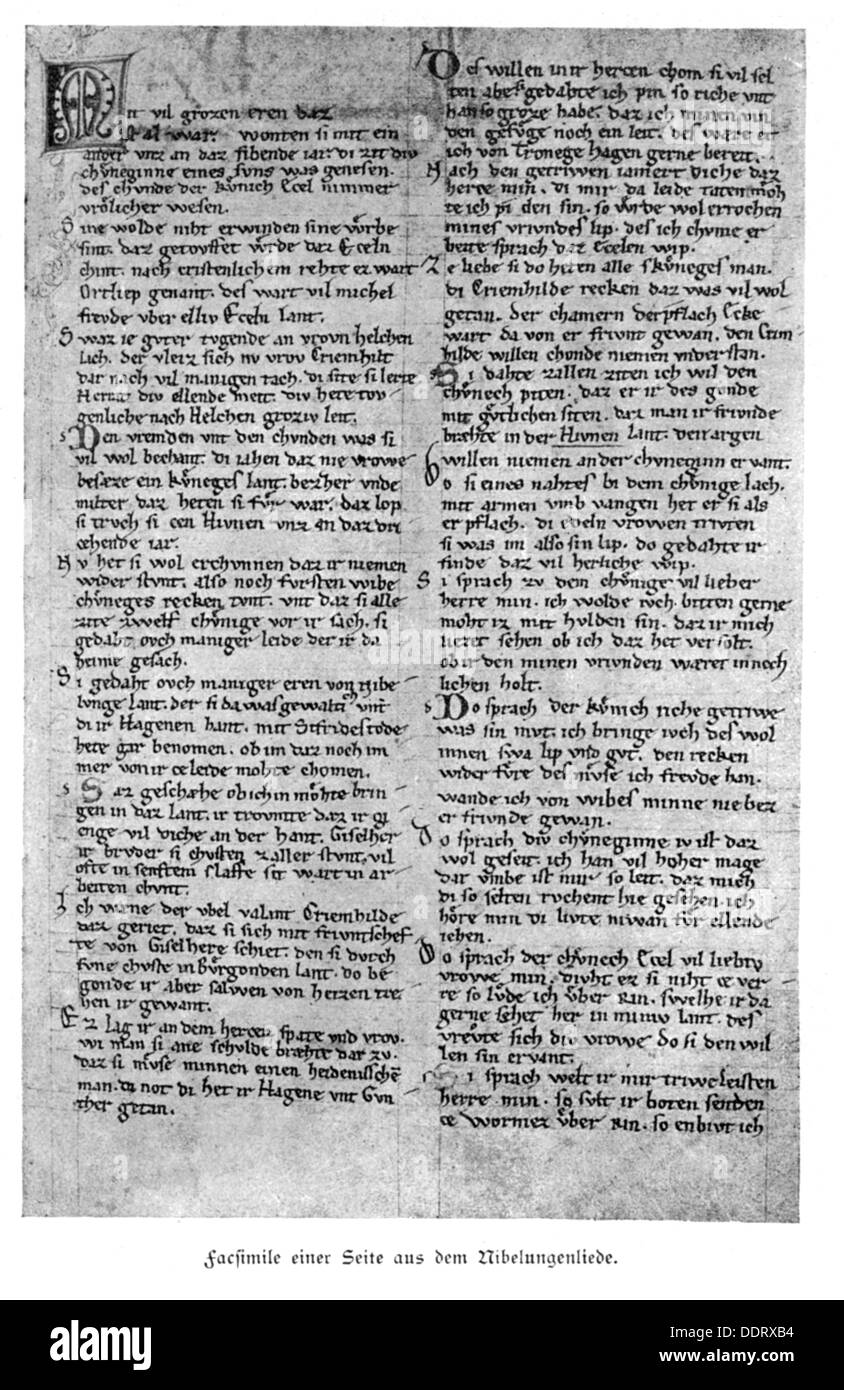 Mit vil grozen eren daz
ist al war. wonten si mit ein
ander vnz an daz sibende iar. di zit div
chvneginne eines svns was genesen.
des chvnde der kvnich Ecel nimmer
vrölicher wesen.
Sine wolde niht erwinden sine wrbe
sint. daz getovffet wrde daz Eceln
chint. nach cristenlichem rehte ez wart
Ortliep genant. des wart vil michel
frevde vber elliv Eceln lant.
Swaz ie gvter tvgende an vrovn helchen
lich. der vleiz sich nv vrov Criemhilt
dar nach vil manigen tach. di site si lerte
Herrat div ellende meit. div hete tov-
genliche nach Helchen groziv leit.
Den vremden vnt den chvnden was si
vil wol bechant. di iahen daz nie vrowe
besæze ein kvneges lant. bezher vnde
milter. daz heten si fvr war. daz lop
si trvch si cen Hivnen vnz an daz dri
cehende iar.
Nv het si wol erchvnnen daz ir niemen
wider stvnt. also noch fvrsten wibe
chvneges recken tvnt. vnt daz si alle
zite zwelf chvnige vor ir sach. si
gedaht ovch maniger leide der ir da
heime gesach.
Si gedaht ovch maniger eren von Nibe
lvnge lant. der si da was gewaltich vnt
di ir Hagenen hant. mit Sifrides tode
hete gar benomen. ob im daz noch im
mer von ir ce leide mohte chomen.
Daz geschæhe ob ich in möhte brin-
gen in daz lant. ir trovmte daz ir gi
enge vil diche an der hant. Giselher
ir brvder si chvsten zaller stvnt. vil
ofte in senftem slaffe sit wart in ar
beiten chvnt.
Ich wæne der vbel valant Criemhilde
daz geriet. daz si sich mit frivntschef
te von Giselhere schiet. den si dvrch
svne chvste in Bvrgonden lant. do be
gonde ir aber salwen von heizen tre
hen ir gewant.
Ez lag ir an dem hercen spate vnd vrov.
wi man si ane schvlde bræhte dar zv.
daz si mvse minnen einen heidenisschen
man. di not di het ir Hagene vnt Gvn
ther getan.
Des willen in ir hercen chom si vil sel
ten abe. gedahte ich pin so riche vnt
han so groze habe. daz ich minen vin
den gefvge noch ein leit. des wære et
ich von Tronege Hagen gerne bereit.
Nach den getriwen iamert diche daz
herce min. di mir da leide taten möh
te ich pi den sin. so wrde wol errochen
mines vrivndes lip. des ich chvme er
beite sprach daz Ecelen wip.
Ze liebe si do heten alle skvneges man.
di Criemhilde recken daz was vil wol
getan. der chamern der pflach Ecke
wart da von er frivnt gewan. den Crim-
hilde willen chonde niemen vnderstan.
Si dahte zallen ziten ich wil den
chvnech piten. daz er ir des gonde
mit gvtlichen siten. daz man ir frivnde
bræhte in der Hivnen lant. den argen
willen niemen an der chvneginn ervant.
Do si eines nahtes bi dem chvnige lach.
mit armen vmb vangen het er si als
er pflach. di edeln vrovven trivten
si was im also sin lip. do gedahte ir
finde daz vil herliche wip.
Si sprach zv dem chvnige vil lieber
herre min. ich wolde ivch bitten gerne
moht iz mit hvlden sin. daz ir mich
liezet sehen ob ich daz het versolt.
ob ir den minen vrivnden wæret innech
lichen holt.
Do sprach der kvnich riche getriwe
was sin mvt. ich bringe ivch des wol
innen swa lip vnd gvt. den recken
wider fvre des mvse ich frevde han.
wande ich von wibes minne nie bez
er frivnde gewan.
Do sprach div chvneginne iv ist daz
wol geseit. ich han vil hoher mage
dar vmbe ist mir so leit. daz mich
di so selten rvchent hie gesehen. ich
höre min di livte niwan fvr ellende
iehen.
Do sprach der chvnech Ecel vil liebiv
vrowe min. divht ez si niht ce ver
re so lvde ich vber Rin. swelhe ir da
gerne sehet her in miniv lant. des
vrevte sich div vrowe do si den wil
len sin ervant.
Si sprach welt ir mir triwe leisten
herre min. so svlt ir boten senden
ce wormez vber Rin. so enbivt ich
Facsimile einer Seite aus dem Nibelungenliede.
alamy
Image ID: DDRXB4
www.alamy.com